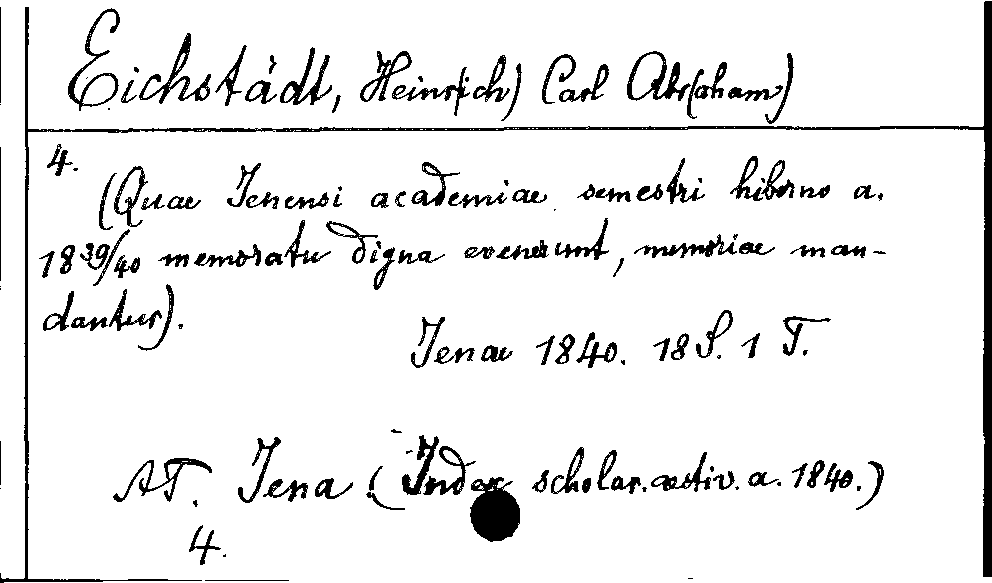 Eichstädt, Heinr(ich) Carl Abr(aham)
4.
(Quae Jenensi academiae semestri hiberno a.
18 39/40 memoratu digna evenerunt, memoriae man-
dantur).
Jenae 1840. 18 S. 1 T.
AT. Jena (Index scholar. aestiv. a. 1840.)
4.